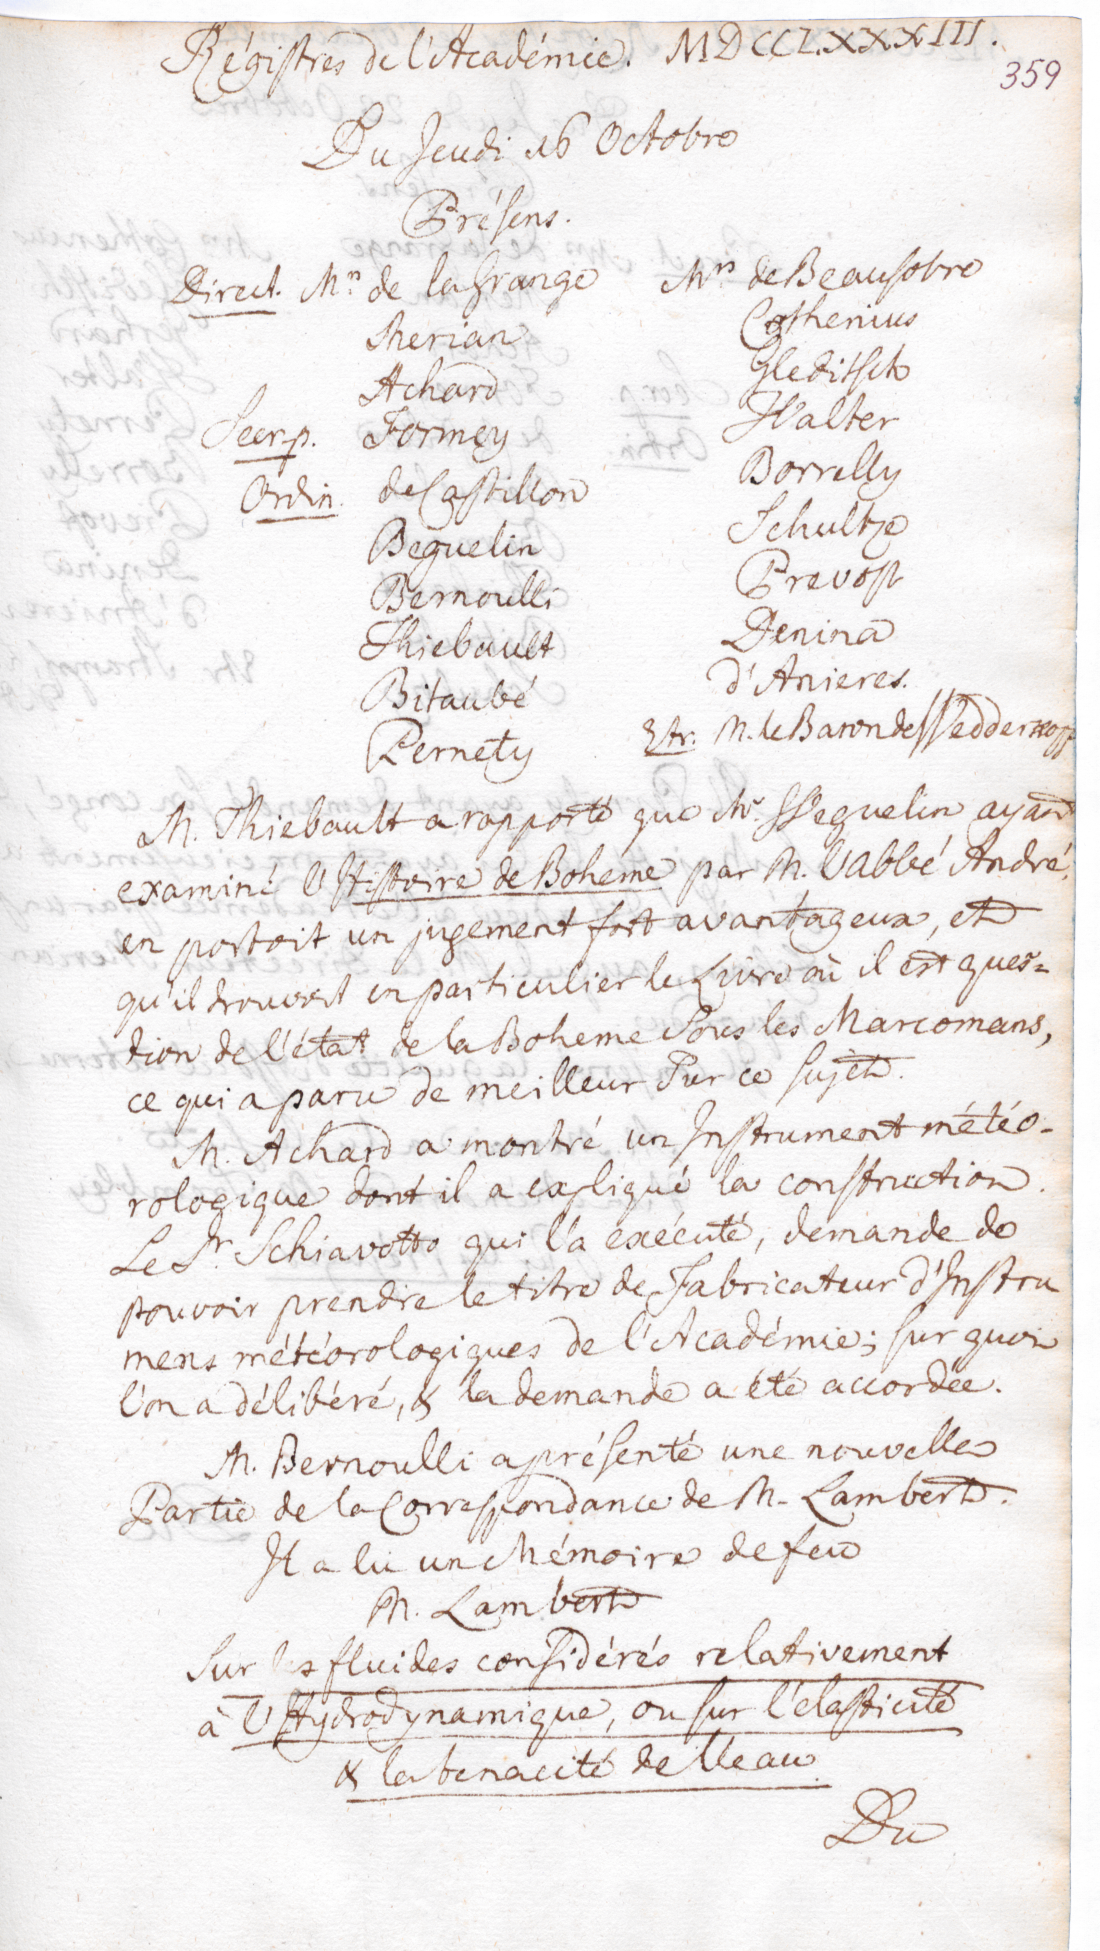 Régistres de l'Académie. MDCCLXXXIII.
359
Du Jeudi 16 Octobre
Présens.
Direct. Mrs de la Grange
Merian
Achard
Secr. p. Formey
Ordin. de Castillon
Beguelin
Bernoulli
Thiebault
Bitaubé
Pernety
Mrs de Beausobre
Cothenius
Gleditsch
Walter
Borrelly
Schultze
Prevost
Denina
d'Anieres.
Etr. M. le Baron de Wedderkopp
M. Thiebault a rapporté que Mr. Weguelin ayant
examiné l'Histoire de Boheme par M. l'abbé André,
en portoit un jugement fort avantageux, et
qu'il trouvoit en particulier le Livre où il est ques=
tion de l'état de la Boheme sous les Marcomans,
ce qui a paru de meilleur sur ce sujet.
M. Achard a montré un Instrument météo-
rologique dont il a expliqué la construction.
Le Sr. Schiavotto qui l'a exécuté, demande de
pouvoir prendre le titre de Fabricateur d'Instru
mens météorologiques de l'Académie; sur quoi
l'on a délibéré, & la demande a été accordée.
M. Bernoulli a présenté une nouvelle
Partie de la Correspondance de M. Lambert.
Il a lu un Mémoire de feu
M. Lambert
Sur les fluides considérés relativement
à l'Hydrodynamique, ou sur l'élasticité
& la tenacité de l'eau.
Du